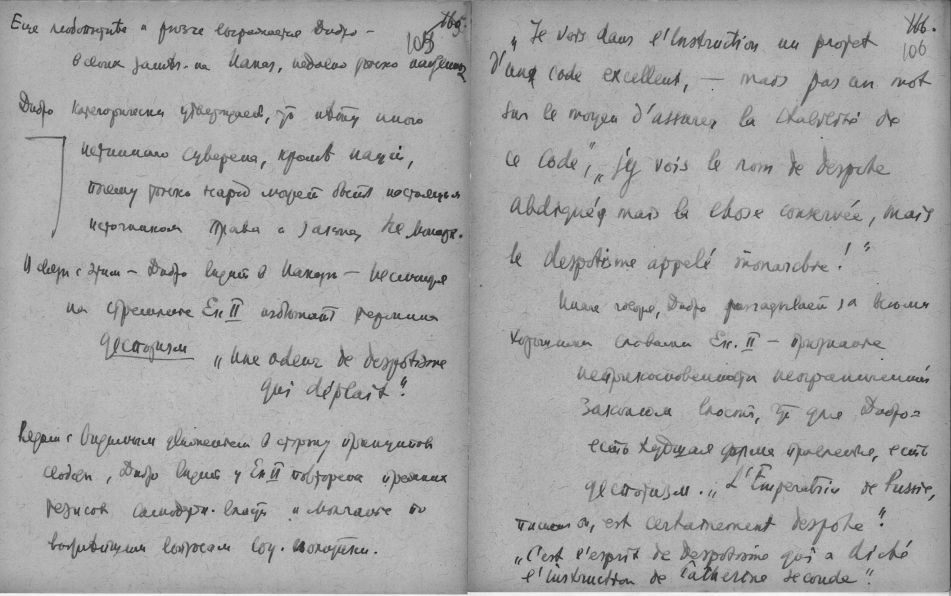 165.
105
Еще любопытнее и резче выражается Дидро –
в своих замеч. на Наказ, недавно только
Дидро категорически утверждает, что нет иного
истинного суверена, кроме нации,
почему только народ может быть настоящим
источником права и закона, не монарх.
В связи с этим – Дидро видит в Наказе – несмотря
на стремление Ек. II избежать термина
деспотизм „Une odeur de despotisme
qui déplait“.
Рядом с видимым движением в сторону принципов
свободы, Дидро видит у Ек II повторение прежних
тезисов самодерж. власти и молчание по
вопросам соц. политики.
166.
106
„Je vois dans l'Instruction un projet
d'une code excellent, – mais pas un mot
sur le moyen d'assurer la stabilité de
ce code“, „j'y vois le nom de despote
abdiqué, mais la chose conservée, mais
le despotisme appelé monarchie!“
Иначе говоря, Дидро разгадывает за всеми
хорошими словами Ек. II – признание
неприкосновенности неограниченной
законом власти, что для Дидро –
есть худшая форма правления, есть
деспотизм. „L'Impératrice de Russie,
пишет он, est certainement despote“.
„C'est l'esprit de Despotisme qui a dicté
l'instruction de Catherine seconde“.